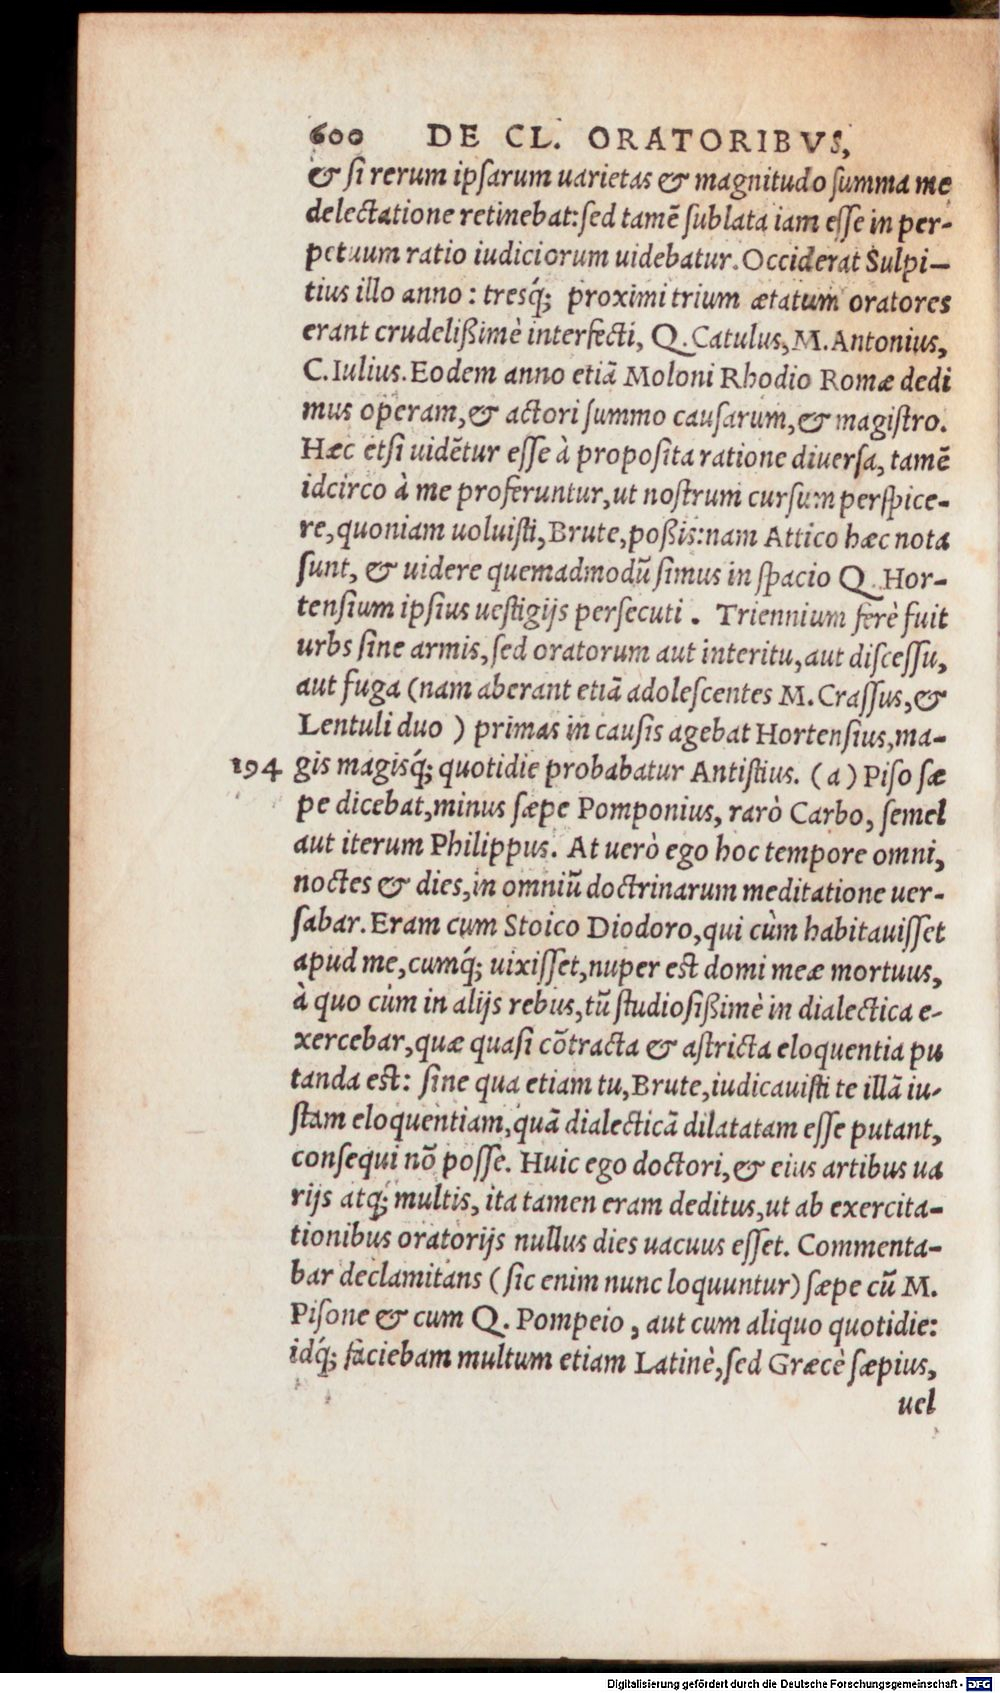 600 DE CL. ORATORIBVS,
& si rerum ipsarum uarietas & magnitudo summa me
delectatione retinebat: sed tamē sublata iam esse in per-
petuum ratio iudiciorum uidebatur. Occiderat Sulpi-
tius illo anno: tresq́; proximi trium ætatum oratores
erant crudelißimè interfecti, Q. Catulus, M. Antonius,
C. Iulius. Eodem anno etiā Moloni Rhodio Romæ dedi
mus operam, & actori summo causarum, & magistro.
Hæc etsi uidētur esse à proposita ratione diuersa, tamē
idcirco à me proferuntur, ut nostrum cursum perspice-
re, quoniam uoluisti, Brute, poßis: nam Attico hæc nota
sunt, & uidere quemadmodū simus in spacio Q. Hor-
tensium ipsius uestigijs persecuti. Triennium ferè fuit
urbs sine armis, sed oratorum aut interitu, aut discessu,
aut fuga (nam aberant etiā adolescentes M. Crassus, &
Lentuli duo) primas in causis agebat Hortensius, ma-
194 gis magisq́; quotidie probabatur Antistius. (a) Piso sæ
pe dicebat, minus sæpe Pomponius, rarò Carbo, semel
aut iterum Philippus. At uerò ego hoc tempore omni,
noctes & dies, in omniū doctrinarum meditatione uer-
sabar. Eram cum Stoico Diodoro, qui cùm habitauisset
apud me, cumq́; uixisset, nuper est domi meæ mortuus,
à quo cùm in alijs rebus, tū studiosißimè in dialectica e-
xercebar, quæ quasi cōtracta & astricta eloquentia pu
tanda est: sine qua etiam tu, Brute, iudicauisti te illā iu-
stam eloquentiam, quā dialecticā dilatatam esse putant,
consequi nō posse. Huic ego doctori, & eius artibus ua
rijs atq́; multis, ita tamen eram deditus, ut ab exercita-
tionibus oratorijs nullus dies uacuus esset. Commenta-
bar declamitans (sic enim nunc loquuntur) sæpe cū M.
Pisone & cum Q. Pompeio, aut cum aliquo quotidie:
idq́; faciebam multum etiam Latinè, sed Græcè sæpius,
uel
Digitalisierung gefördert durch die Deutsche Forschungsgemeinschaft - DFG